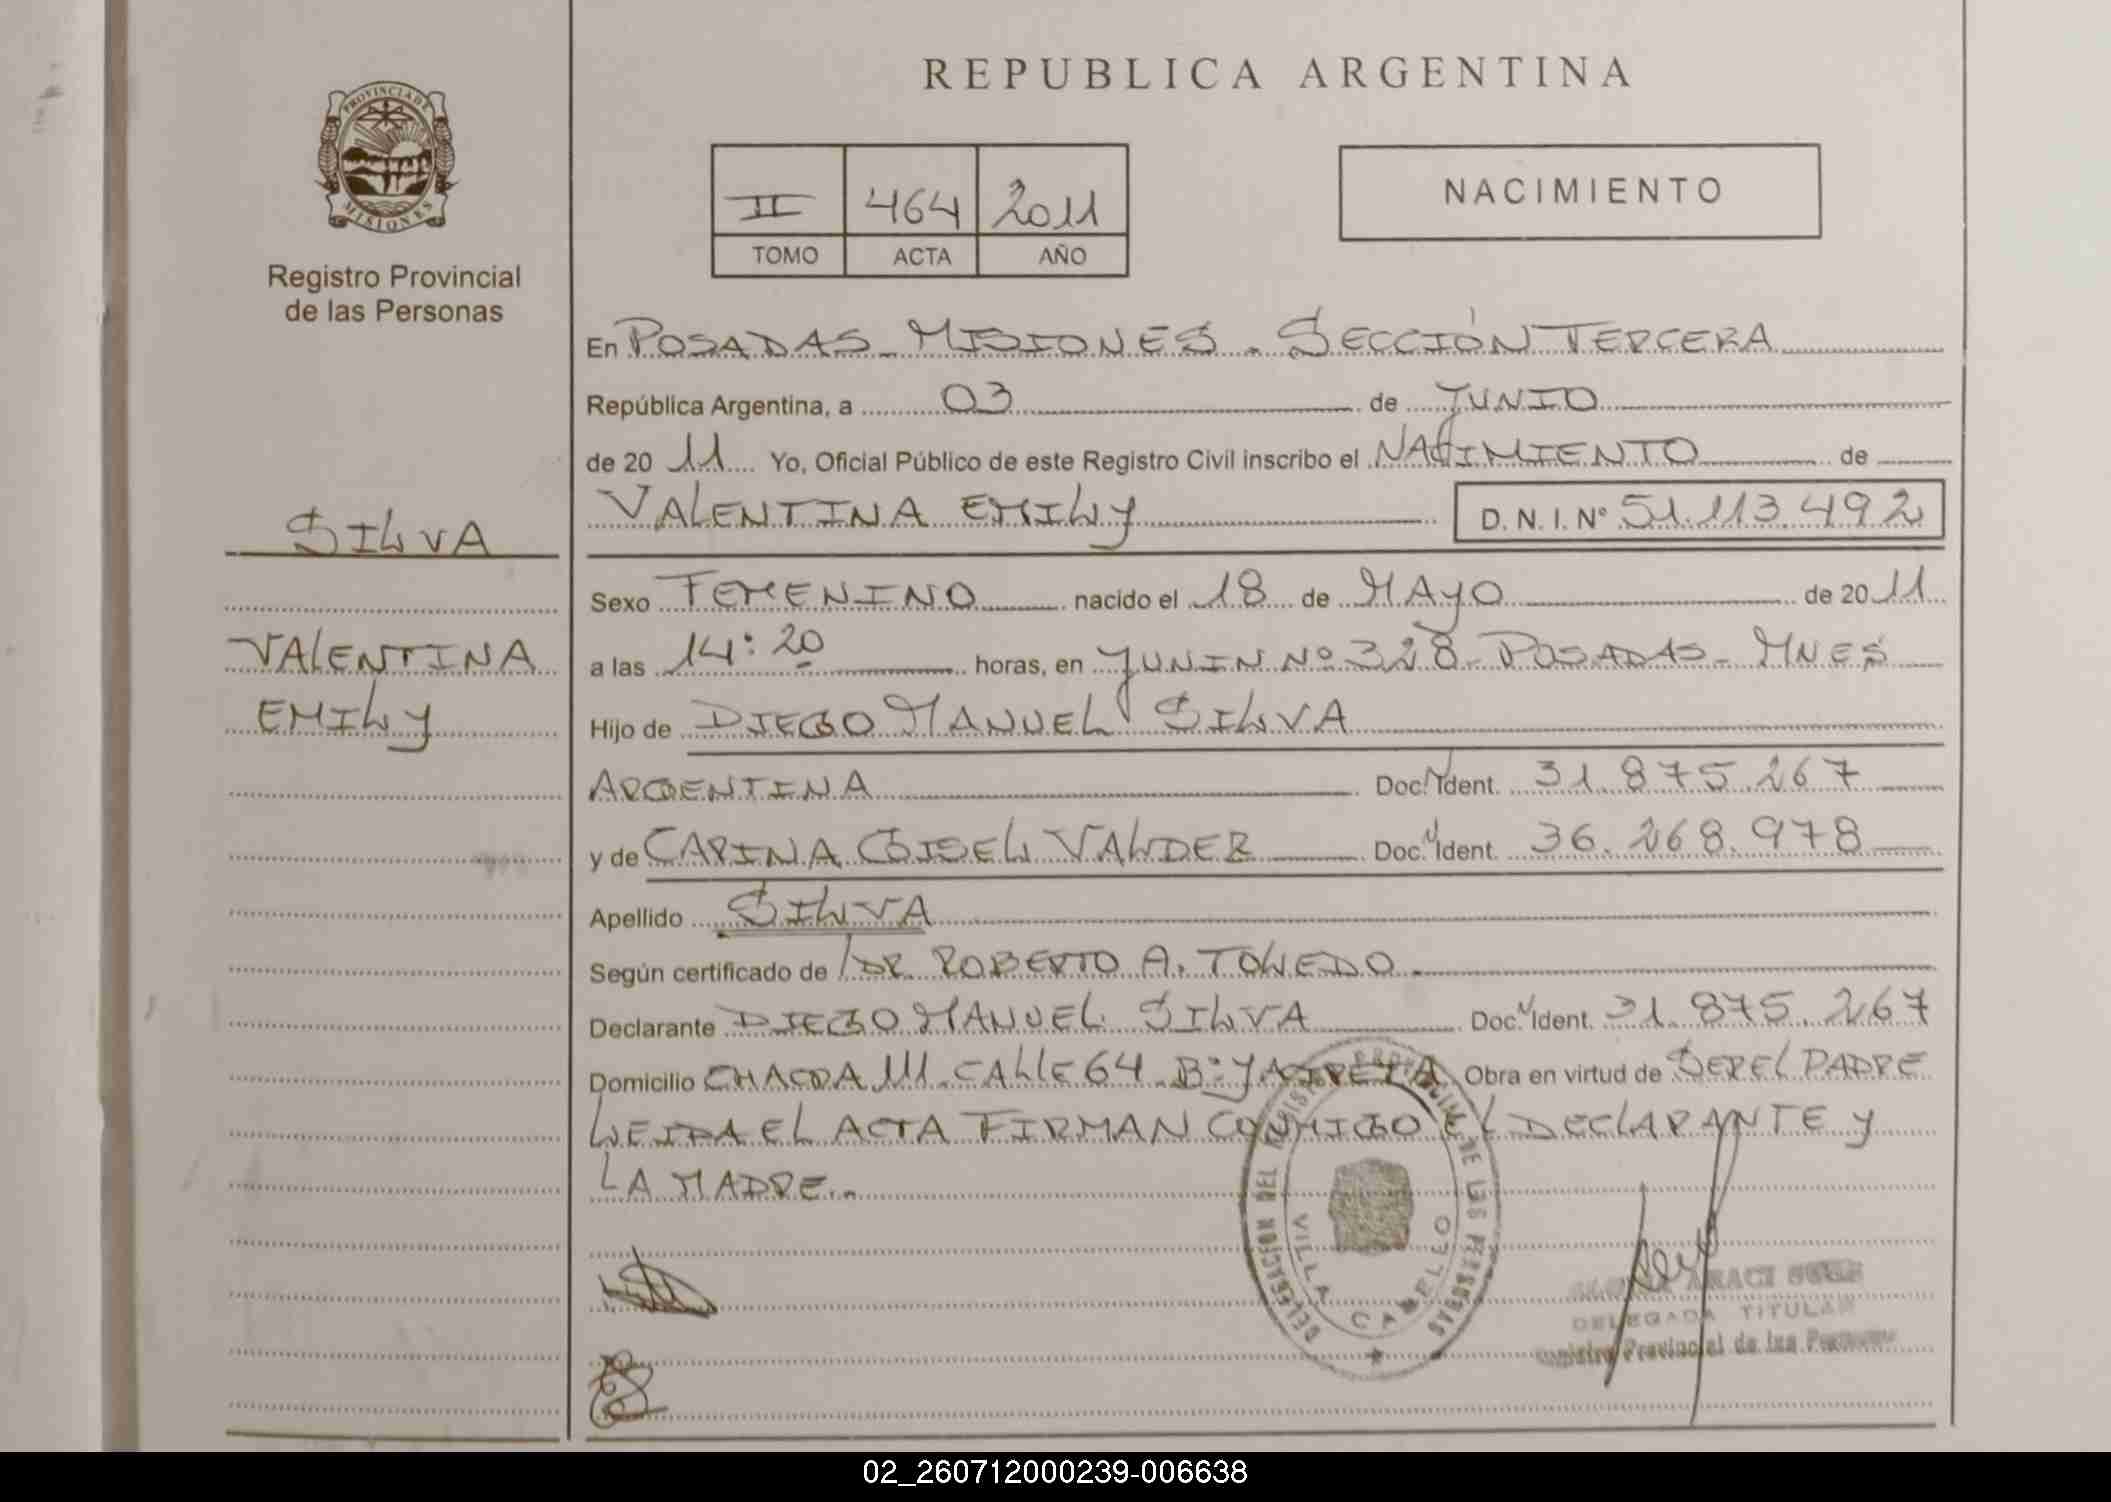 REPUBLICA ARGENTINA
PROVINCIA DE
MISIONES
Registro Provincial
de las Personas
II 464 2011
TOMO ACTA AÑO
NACIMIENTO
En POSADAS - MISIONES - SECCIÓN TERCERA
República Argentina, a 03 de JUNIO
de 20 11 Yo, Oficial Público de este Registro Civil inscribo el NACIMIENTO de
VALENTINA EMILY D. N. I. Nº 51.113.492
SILVA
VALENTINA
EMILY
Sexo FEMENINO nacido el 18 de MAYO de 20 11
a las 14:20 horas, en JUNIN Nº 328 - POSADAS - MNES
Hijo de DIEGO MANUEL SILVA
ARGENTINA Doc. Ident. 31.875.267
y de CARINA GISEL VALDEZ Doc. Ident. 36.268.978
Apellido SILVA
Según certificado de DR. ROBERTO A. TOLEDO
Declarante DIEGO MANUEL SILVA Doc. Ident. 31.875.267
Domicilio CHACRA 111 - CALLE 64 - Bº YACIRETA Obra en virtud de SER EL PADRE
LEIDA EL ACTA FIRMAN CONMIGO EL DECLARANTE Y
LA MADRE.-
DELEGACION DEL REGISTRO PROVINCIAL DE LAS PERSONAS
VILLA CABELLO
ARACI
DELEGADA TITULAR
Registro Provincial de las Personas
02_260712000239-006638